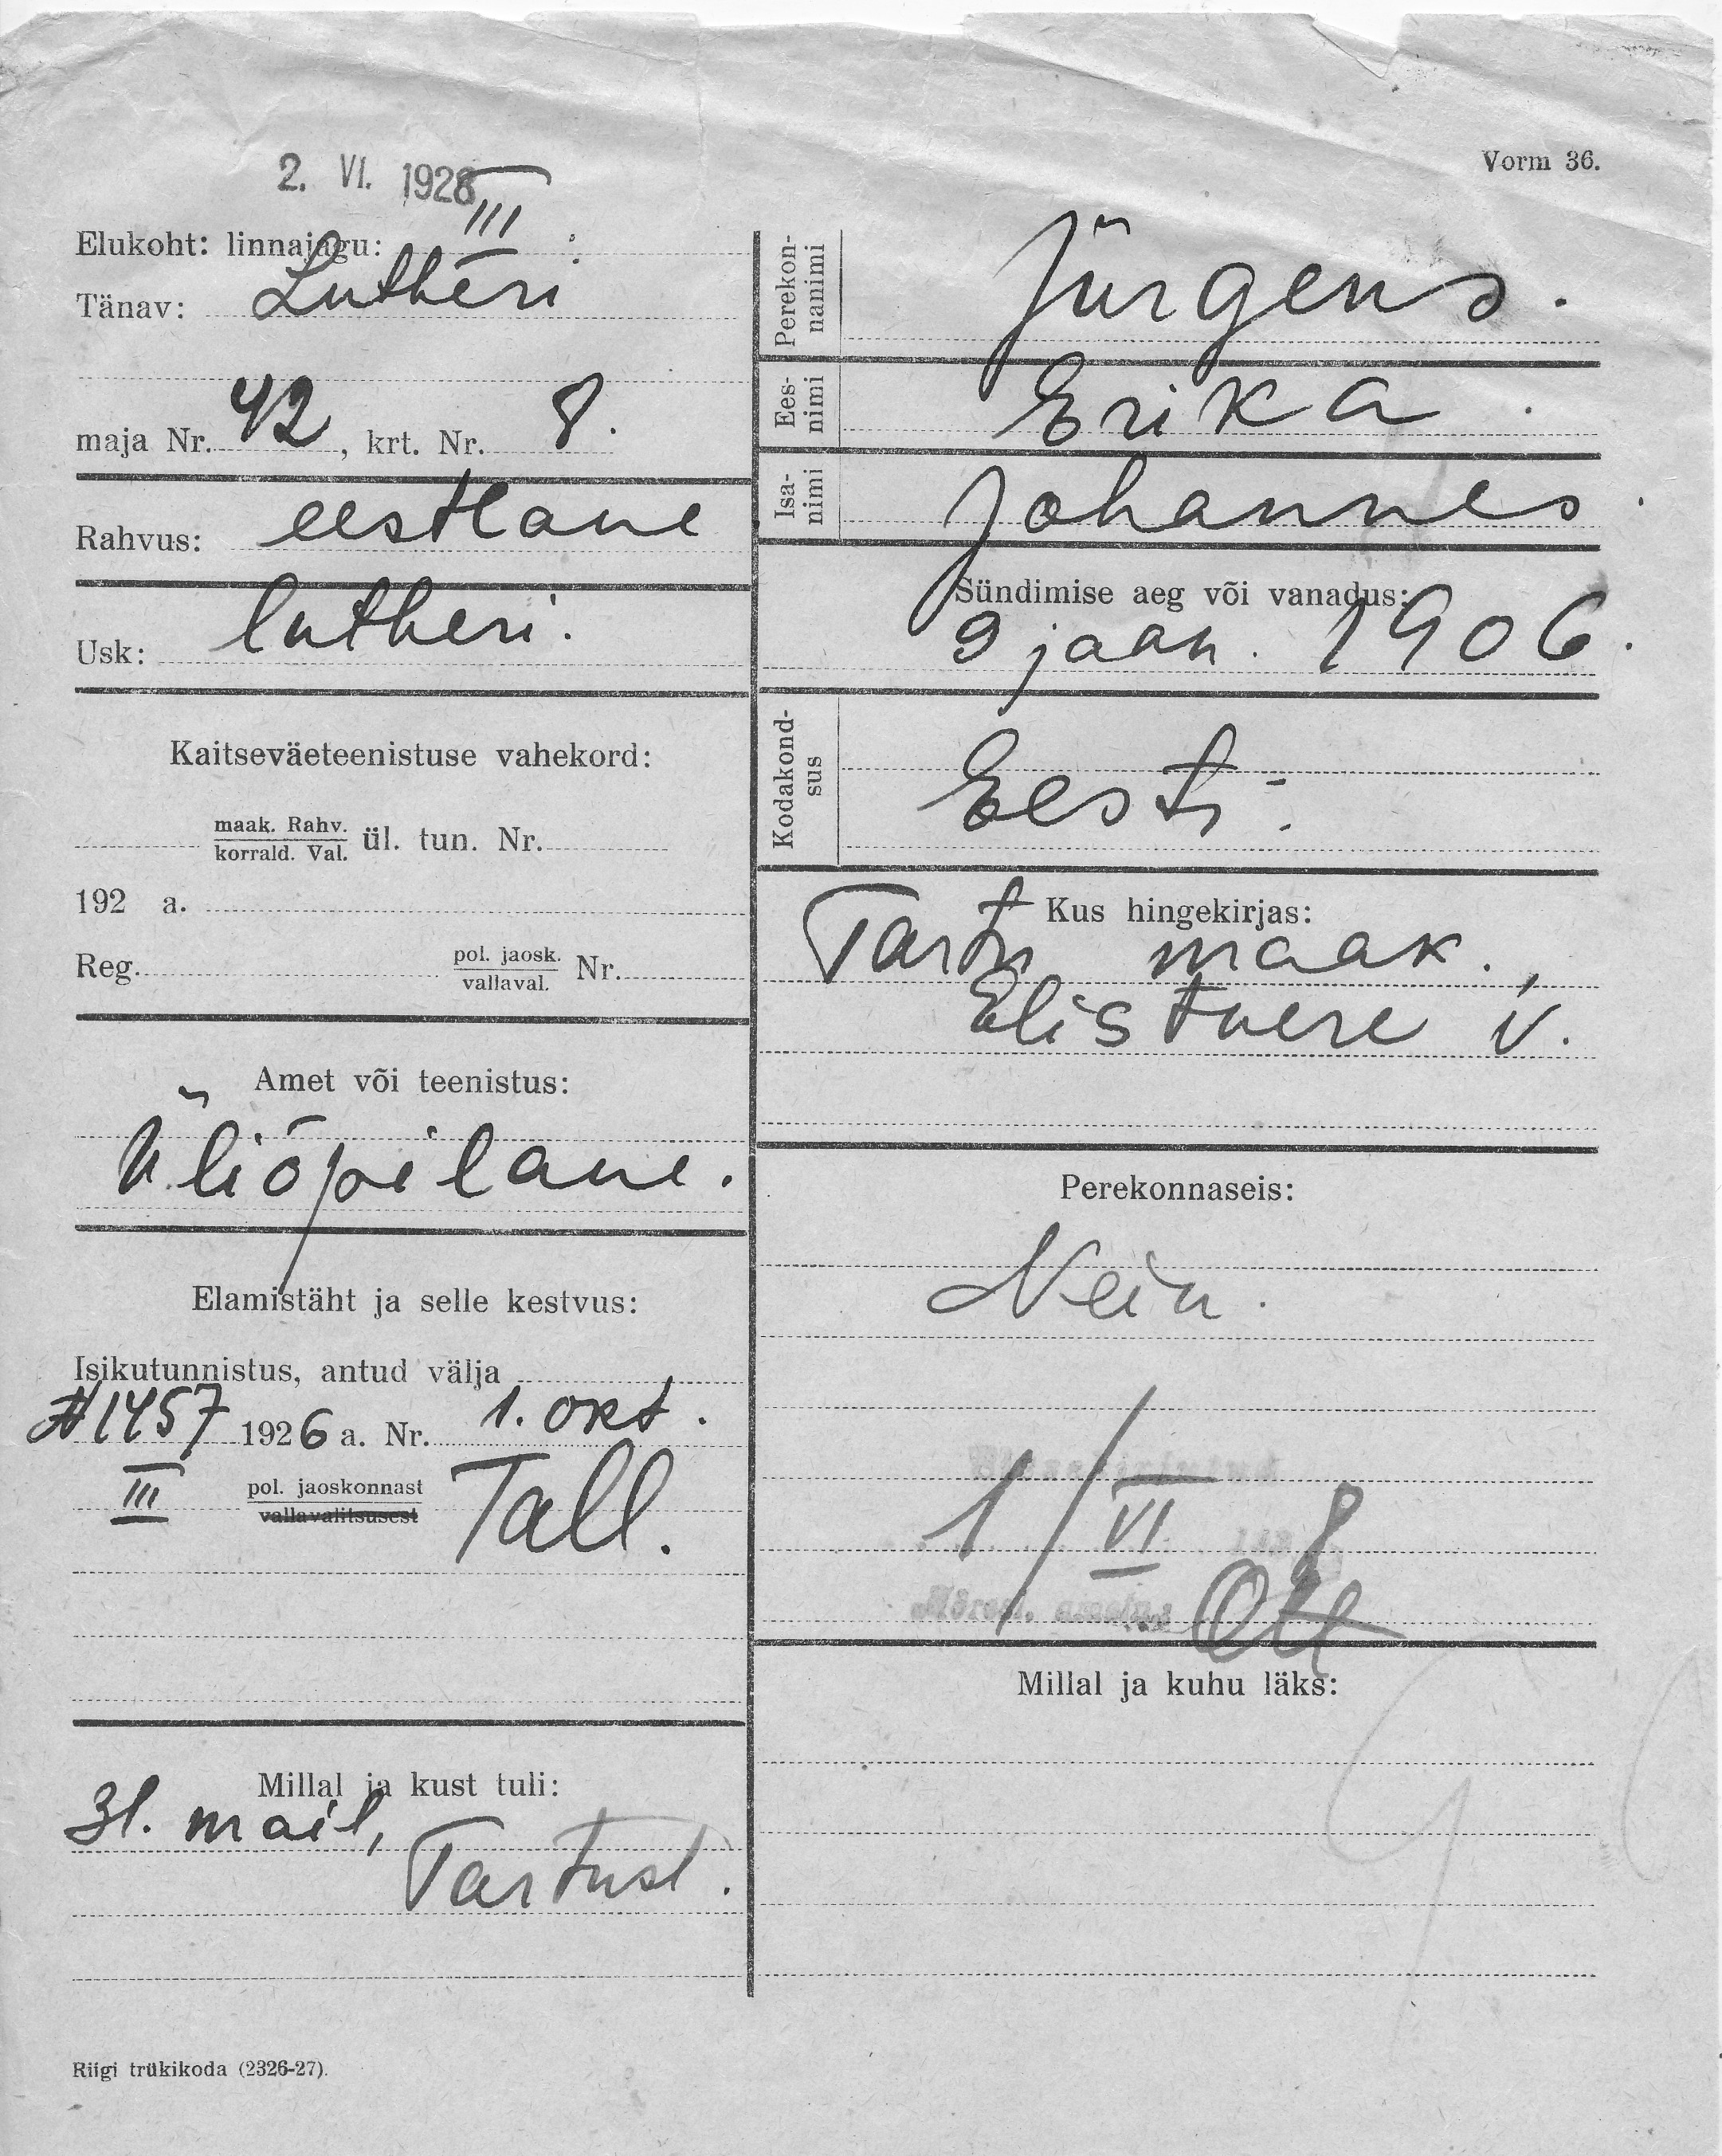 2. VI. 1928
Vorm 36.
Elukoht: linnajagu: III
Tänav: Lutheri
maja Nr. 42, krt. Nr. 8.
Rahvus: eestlane
Usk: lutheri.
Kaitseväeteenistuse vahekord:
maak. Rahv.
korrald. Val. ül. tun. Nr.
192 a.
Reg. pol. jaosk. Nr.
vallaval.
Amet või teenistus:
Üliõpilane.
Elamistäht ja selle kestvus:
Isikutunnistus, antud välja
#1457 1926 a. Nr. 1. okt.
III pol. jaoskonnast Tall.
vallavalitsusest
Millal ja kust tuli:
31. mail,
Tartust.
Perekon-
nanimi Jürgens.
Ees-
nimi Erika.
Isa-
nimi Johannes.
Sündimise aeg või vanadus:
9 jaan. 1906.
Kodakond-
sus Eesti.
Kus hingekirjas:
Tartu maak.,
Elistvere v.
Perekonnaseis:
Nein.
1/VI 8
Millal ja kuhu läks:
Riigi trükikoda (2326-27).